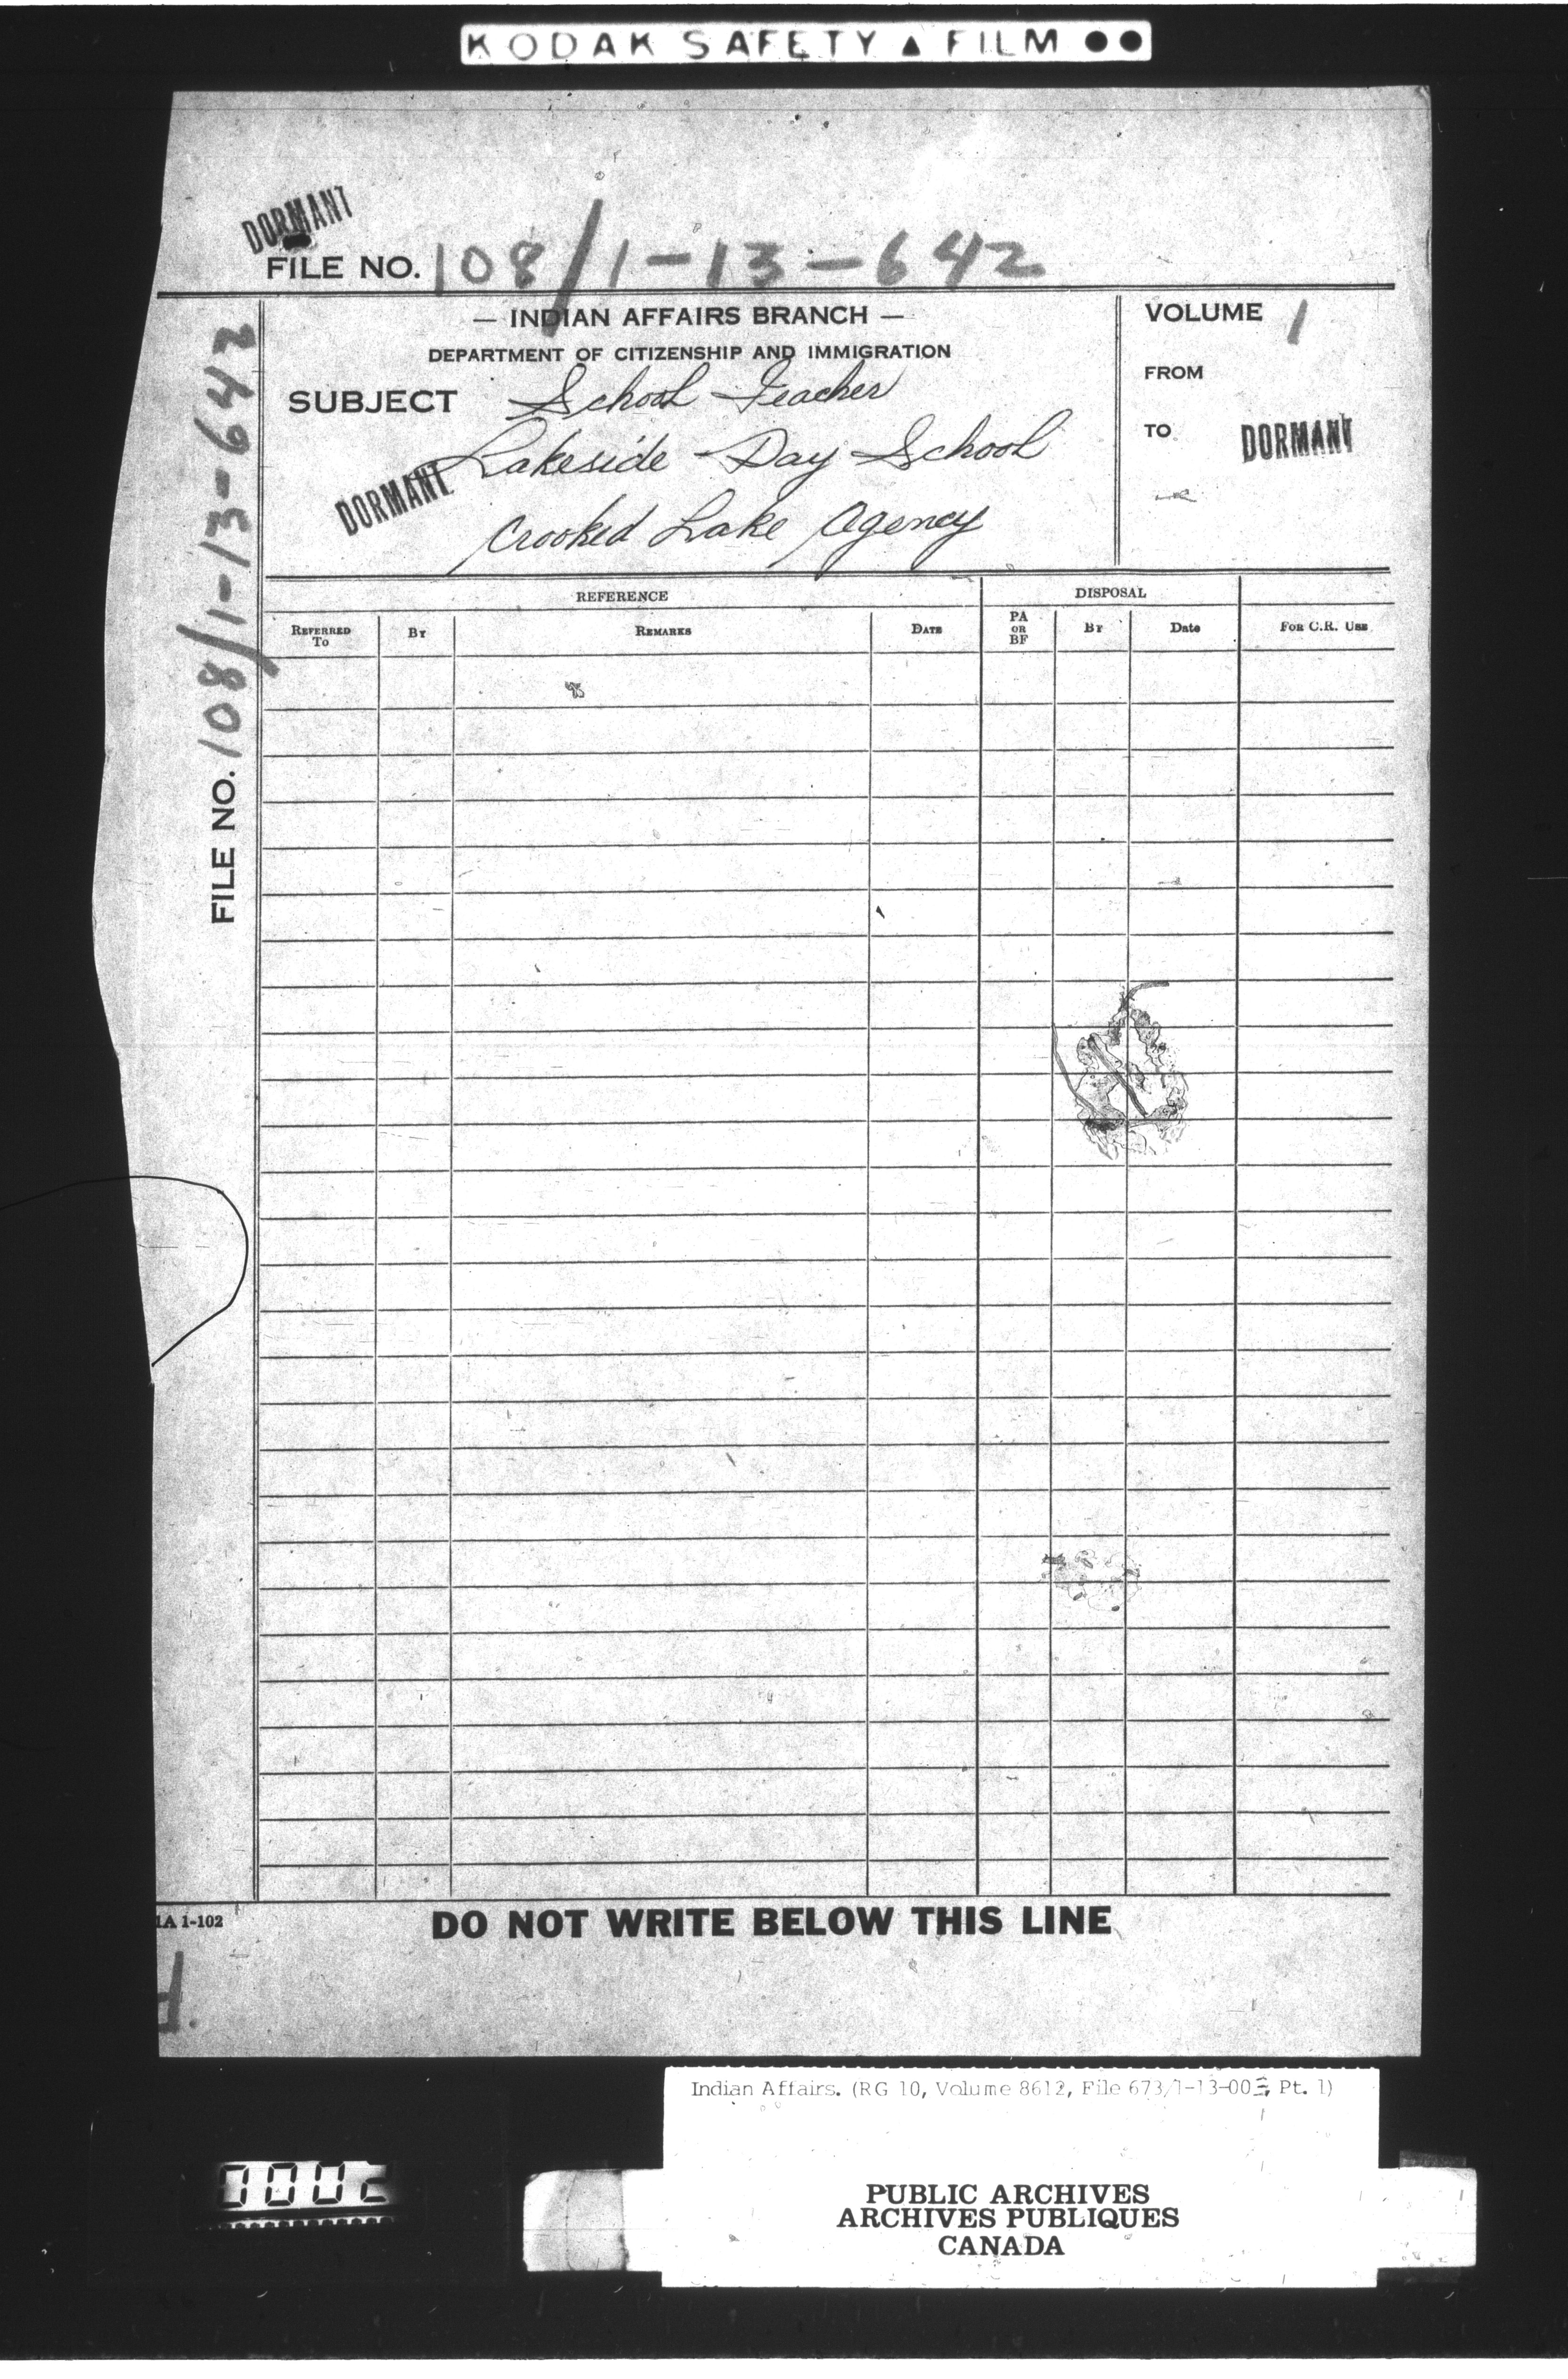 KODAK SAFETY ▲ FILM ●●
DORMANT
FILE NO. 108/1-13-642
FILE NO. 108/1-13-642
— INDIAN AFFAIRS BRANCH —
DEPARTMENT OF CITIZENSHIP AND IMMIGRATION
SUBJECT School Teacher
Lakeside Day School
DORMANT
Crooked Lake Agency
VOLUME 1
FROM
TO DORMANT
REFERENCE
DISPOSAL
REFERRED TO
BY
REMARKS
DATE
PA OR BF
BY
Date
FOR C.R. USE
IA 1-102
DO NOT WRITE BELOW THIS LINE
d.
Indian Affairs. (RG 10, Volume 8612, File 673/1-13-00 , Pt. 1)
0002
PUBLIC ARCHIVES
ARCHIVES PUBLIQUES
CANADA